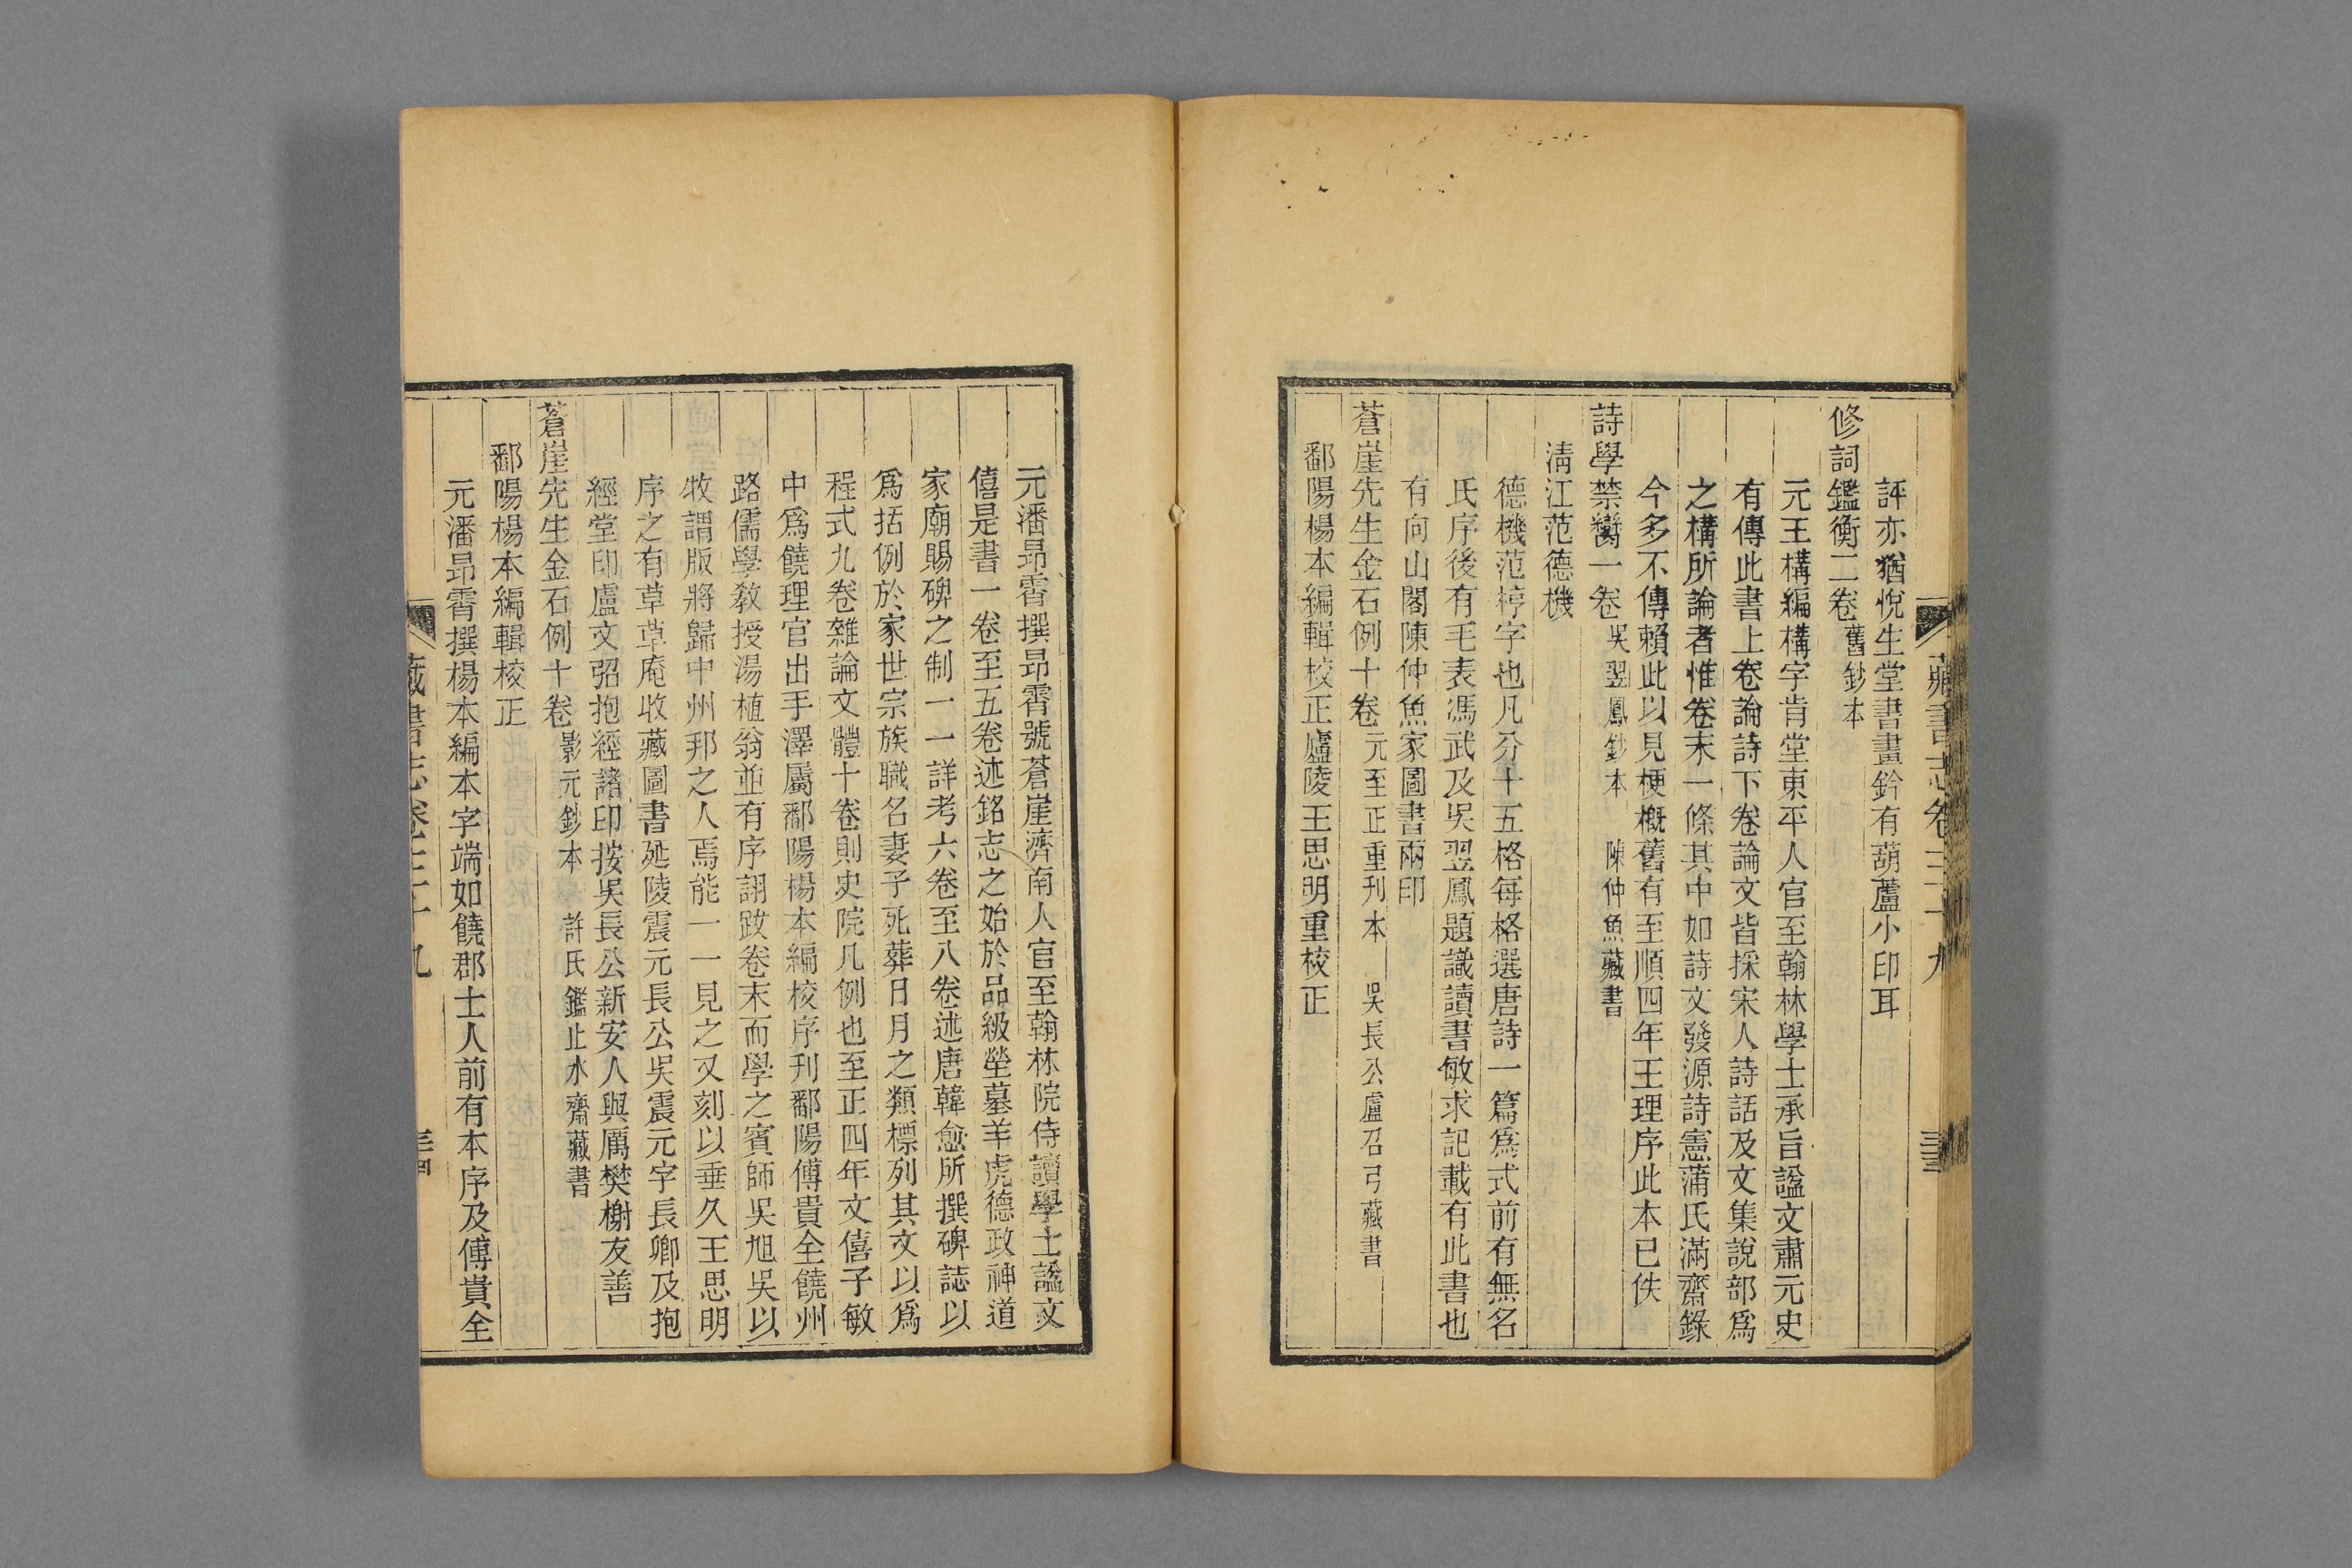 藏書志卷三十九
三十三
評亦猶悅生堂書畫鈐有葫蘆小印耳
修詞鑑衡二卷 舊鈔本
元王構編構字肯堂東平人官至翰林學士承旨諡文肅元史
有傳此書上卷論詩下卷論文皆採宋人詩話及文集說部爲
之構所論者惟卷末一條其中如詩文發源詩憲蒲氏滿齋錄
今多不傳賴此以見梗概舊有至順四年王理序此本已佚
詩學禁臠一卷 吳翌鳳鈔本 陳仲魚藏書
清江范德機
德機范梈字也凡分十五格每格選唐詩一篇爲式前有無名
氏序後有毛表馮武及吳翌鳳題識讀書敏求記載有此書也
有向山閣陳仲魚家圖書兩印
蒼崖先生金石例十卷 元至正重刊本 吳長公盧召弓藏書
鄱陽楊本編輯校正廬陵王思明重校正
元潘昂霄撰昂霄號蒼崖濟南人官至翰林院侍讀學士諡文
僖是書一卷至五卷述銘志之始於品級塋墓羊虎德政神道
家廟賜碑之制一一詳考六卷至八卷述唐韓愈所撰碑誌以
爲括例於家世宗族職名妻子死葬日月之類標列其文以爲
程式九卷雜論文體十卷則史院凡例也至正四年文僖子敏
中爲饒理官出手澤屬鄱陽楊本編校序刊鄱陽傅貴全饒州
路儒學教授湯植翁並有序詡跋卷末而學之賓師吳旭吳以
牧謂版將歸中州邦之人焉能一一見之又刻以垂久王思明
序之有草草庵收藏圖書延陵震元長公吳震元字長卿及抱
經堂印盧文弨抱經諸印按吳長公新安人與厲樊榭友善
蒼崖先生金石例十卷 影元鈔本 許氏鑑止水齋藏書
鄱陽楊本編輯校正
元潘昂霄撰楊本編本字端如饒郡士人前有本序及傅貴全
藏書志卷三十九
三十四